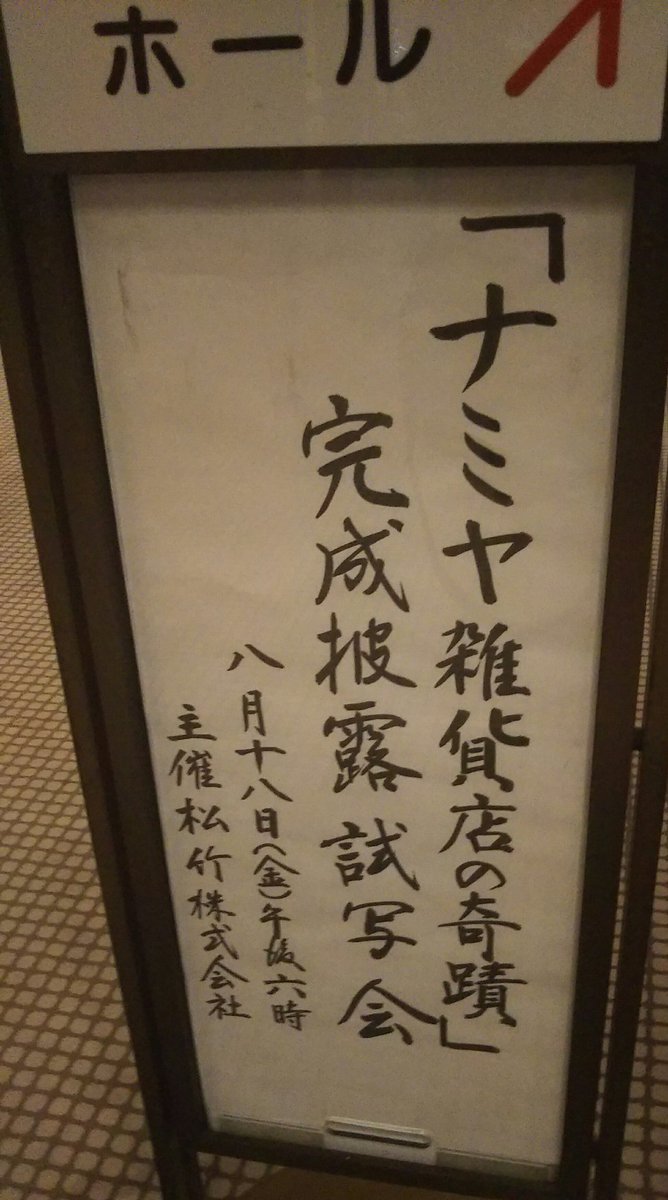 ホール
「ナミヤ雑貨店の奇蹟」
完成披露試写会
八月十八日(金)午後六時
主催松竹株式会社